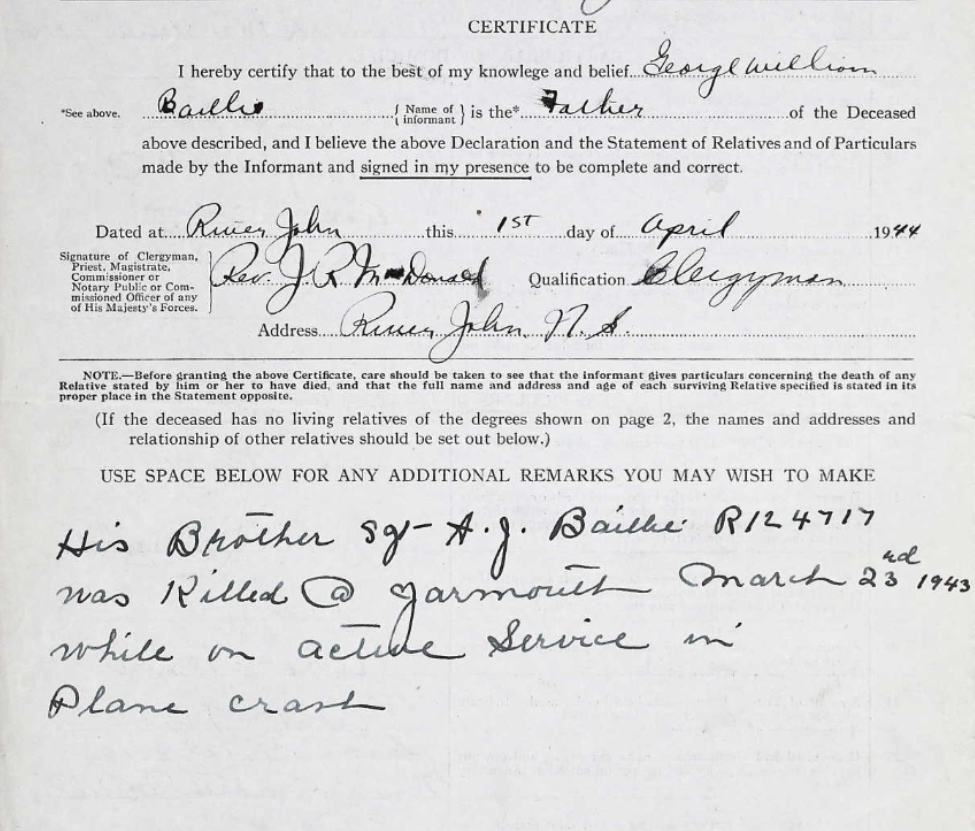 CERTIFICATE
I hereby certify that to the best of my knowlege and belief George William
*See above. Baillie { Name of informant } is the* Father of the Deceased
above described, and I believe the above Declaration and the Statement of Relatives and of Particulars
made by the Informant and signed in my presence to be complete and correct.
Dated at River John this 1st day of April 1944
Signature of Clergyman,
Priest, Magistrate,
Commissioner or
Notary Public or Com-
missioned Officer of any
of His Majesty's Forces.
Rev. J. R. McDonald Qualification Clergyman
Address River John N. S.
NOTE.—Before granting the above Certificate, care should be taken to see that the informant gives particulars concerning the death of any
Relative stated by him or her to have died, and that the full name and address and age of each surviving Relative specified is stated in its
proper place in the Statement opposite.
(If the deceased has no living relatives of the degrees shown on page 2, the names and addresses and
relationship of other relatives should be set out below.)
USE SPACE BELOW FOR ANY ADDITIONAL REMARKS YOU MAY WISH TO MAKE
His Brother Sgt A. J. Baillie R124717
was Killed @ Yarmouth March 23rd 1943
while on active Service in
Plane crash